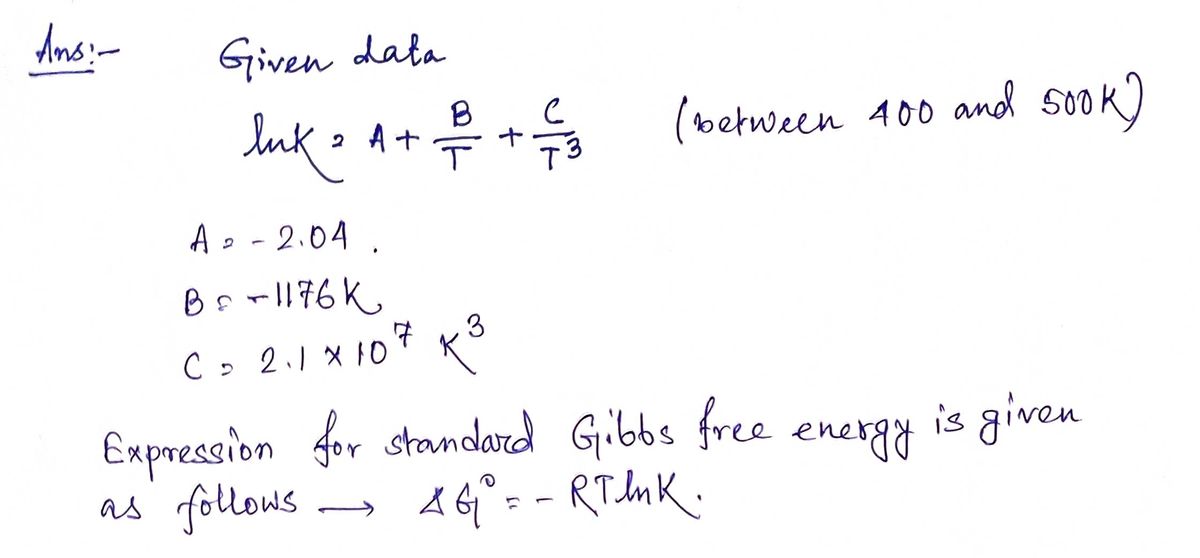 Ans:-
Given data
lnK = A + B/T + C/T³ (between 400 and 500K)
A = - 2.04 .
B = -1176K,
C = 2.1 × 10⁷ K³
Expression for standard Gibbs free energy is given
as follows → ΔG° = - RTlnK.